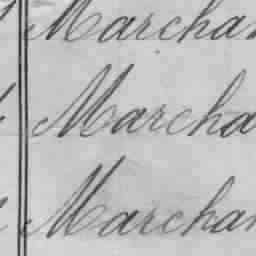 Marchan
Marcha
Marchan